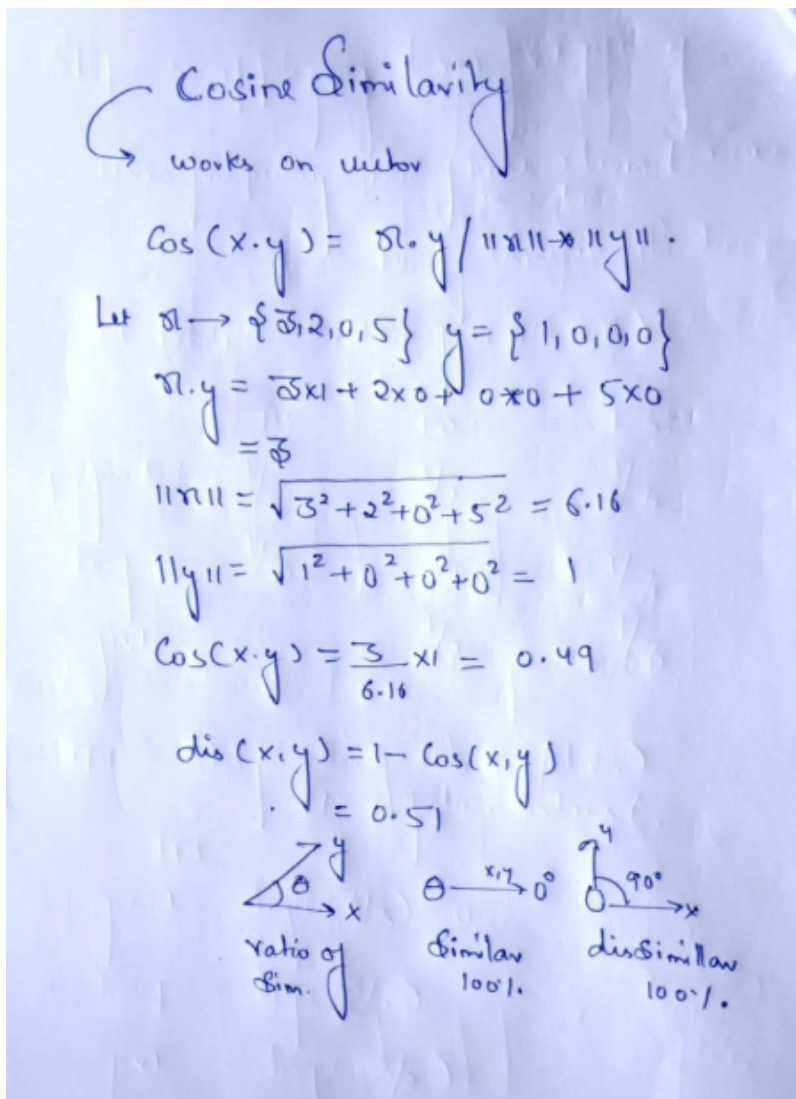 Cosine Similarity
works on vector
Cos (x.y) = x.y / ||x|| * ||y|| .
Let x → {3,2,0,5} y = {1,0,0,0}
x.y = 3x1 + 2x0 + 0*0 + 5x0
= 3
||x|| = √3²+2²+0²+5² = 6.16
||y|| = √1²+0²+0²+0² = 1
Cos(x.y) = 3/6.16 x1 = 0.49
dis (x,y) = 1- Cos(x,y)
= 0.51
y θ x
θ x,y 0°
y 90° 0 x
ratio of Sim.
Similar 100%.
disSimillar 100%.